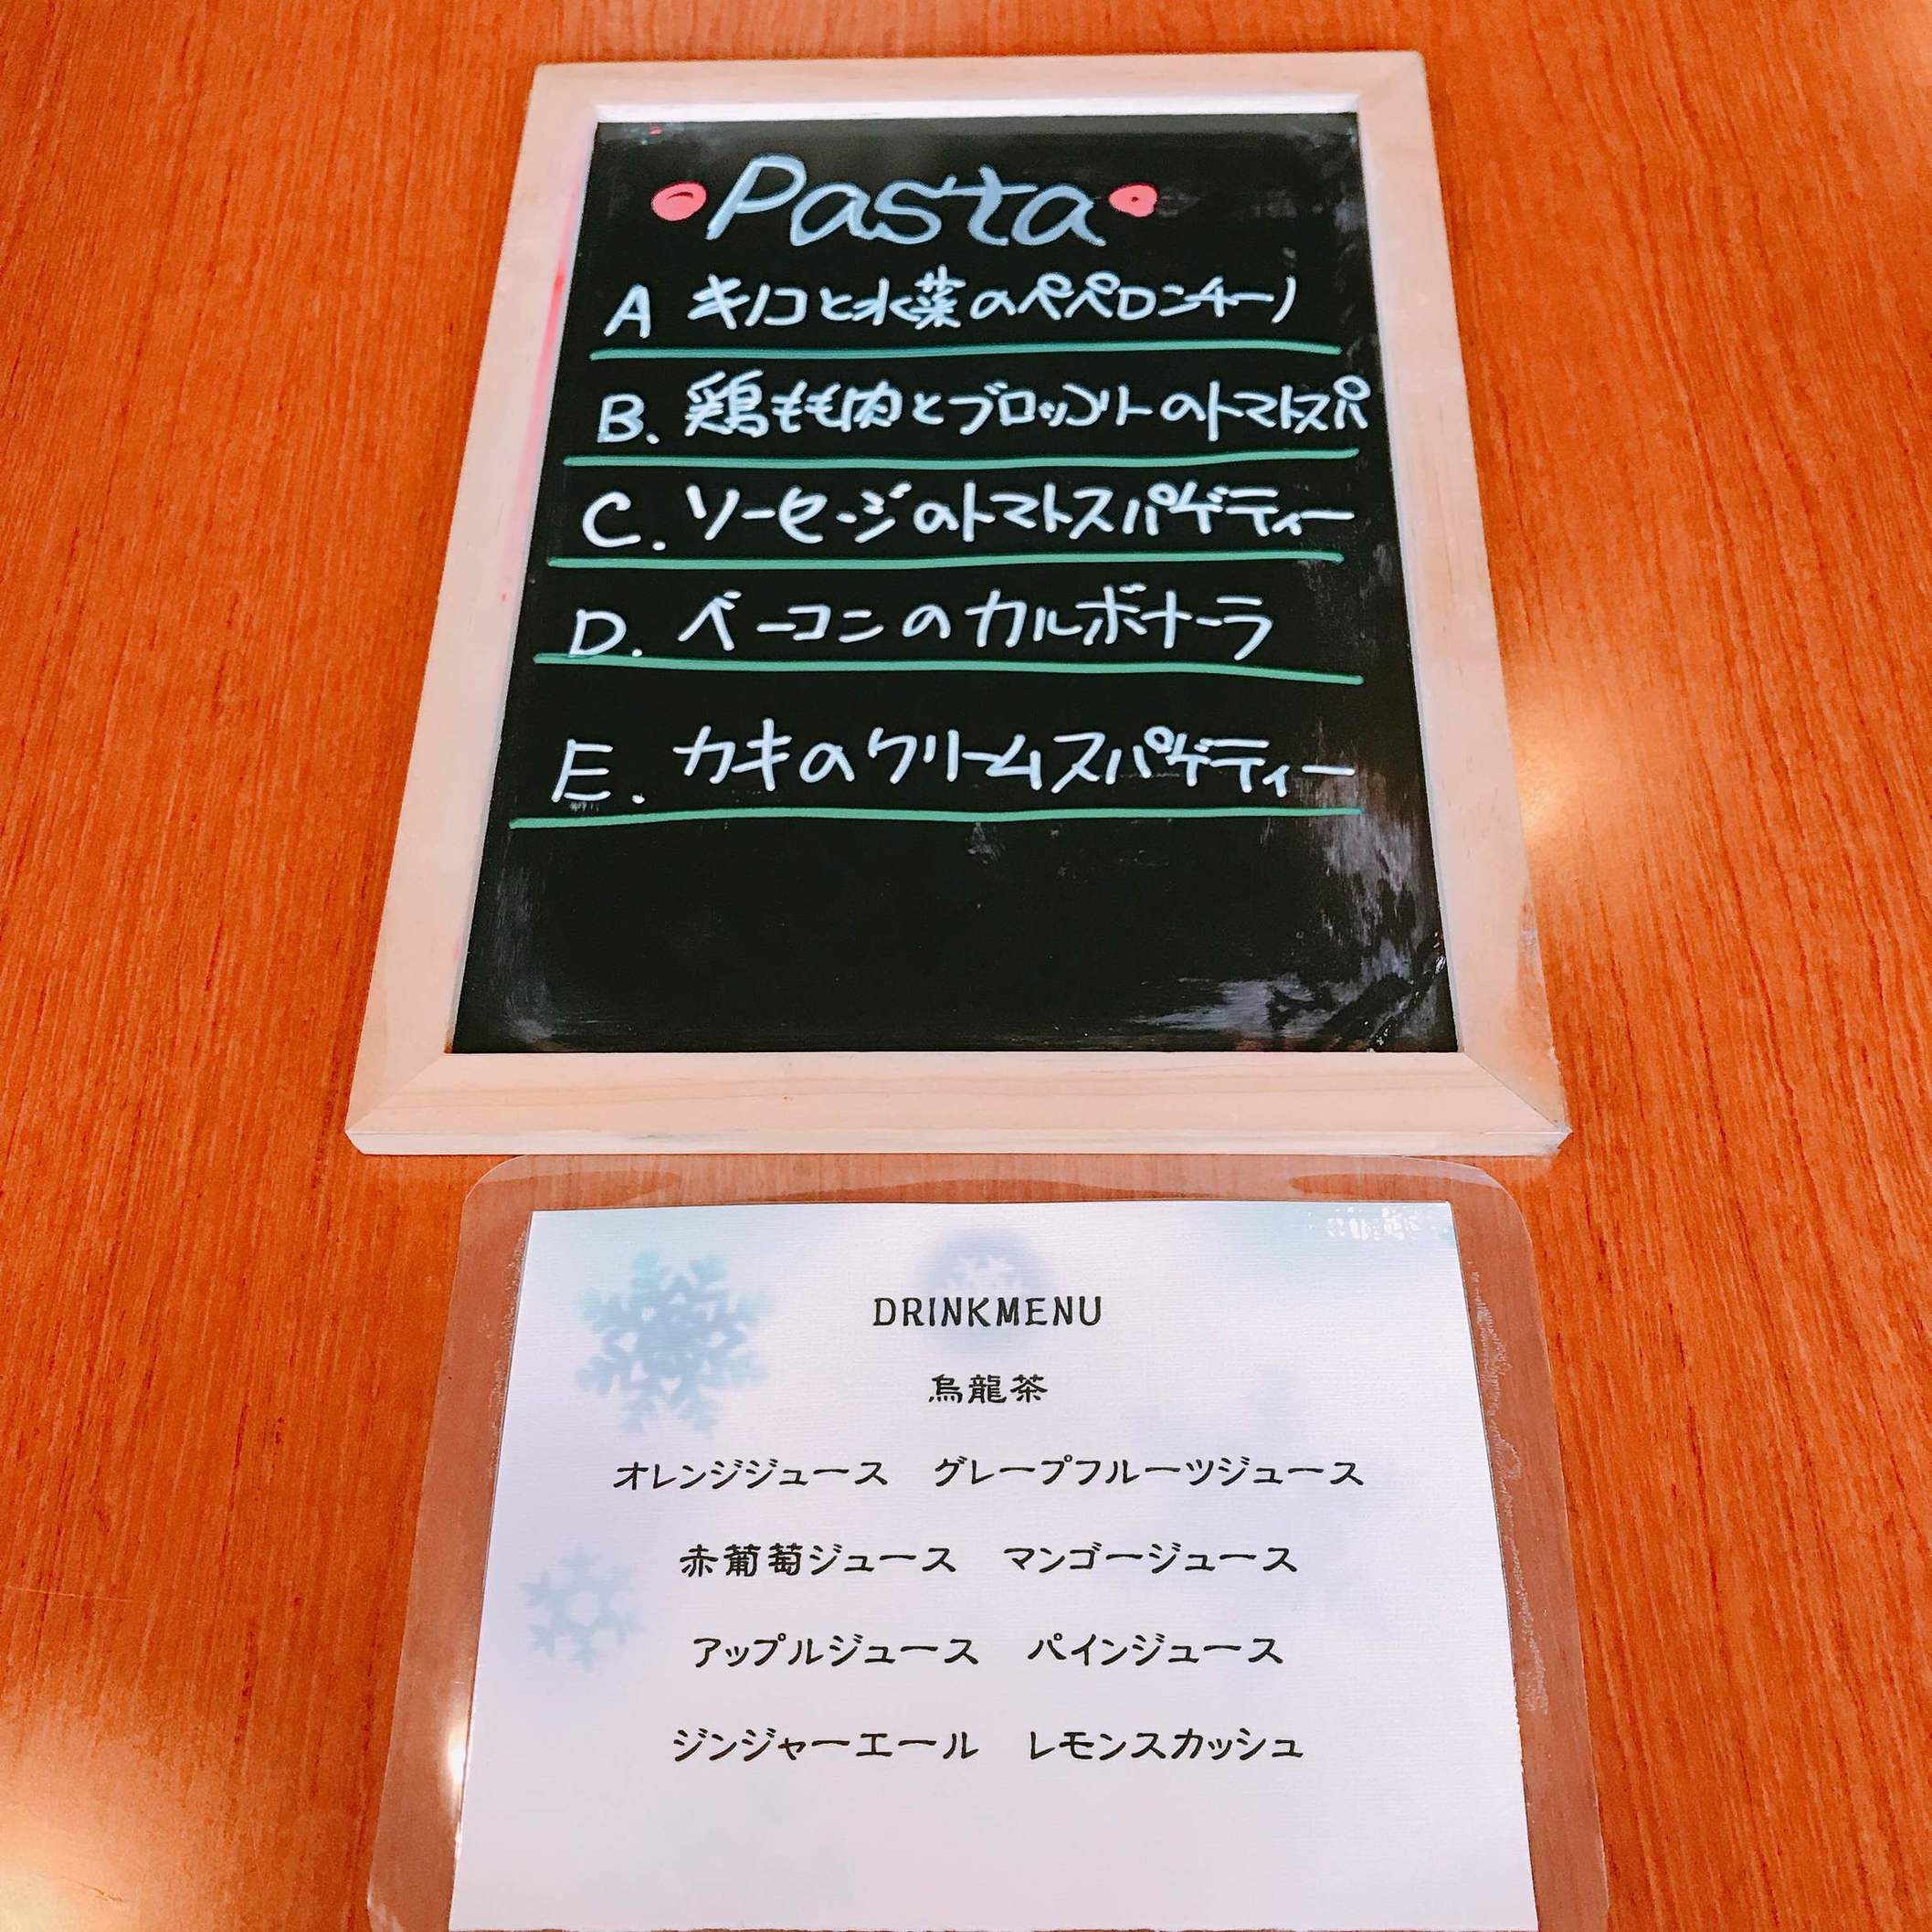 Pasta
A キノコと水菜のペペロンチーノ
B. 鶏もも肉とブロッコリーのトマトスパ
C. ソーセージのトマトスパゲティー
D. ベーコンのカルボナーラ
E. カキのクリームスパゲティー
DRINKMENU
烏龍茶
オレンジジュース グレープフルーツジュース
赤葡萄ジュース マンゴージュース
アップルジュース パインジュース
ジンジャーエール レモンスカッシュ